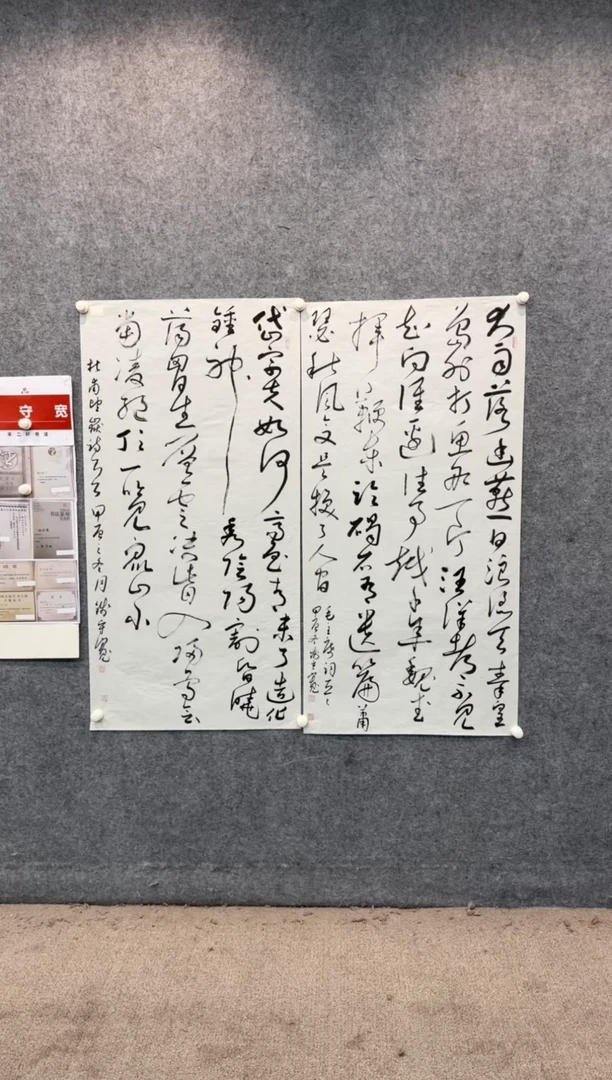 大雨落幽燕白浪滔天秦皇
岛外打鱼船一片汪洋都不见
知向谁边往事越千年魏武
挥鞭东临碣石有遗篇萧
瑟秋风今又是换了人间
毛主席词
甲辰冬 守宽
岱宗夫如何齐鲁青未了造化
鍾神秀陰陽割昏曉
荡胸生层云决眦入归鸟会
当凌绝顶一览众山小
杜甫望嶽诗 甲辰之冬月 守宽
守 宽